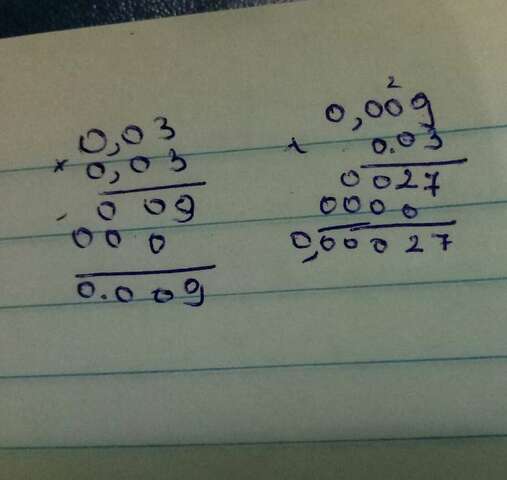 0,03
× 0,03
0 09
00 0
0.009
2
0,009
× 0.03
0 027
0000
0,00027